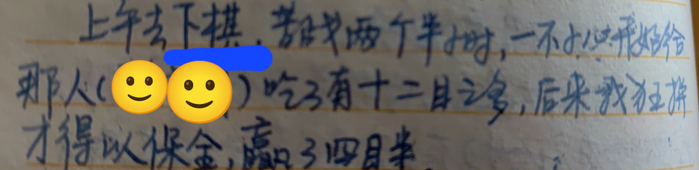 上午去下棋,苦战两个半小时,一不小心开始给
那人()吃了有十二目之多,后来我狂拼
才得以保全,赢了四目半